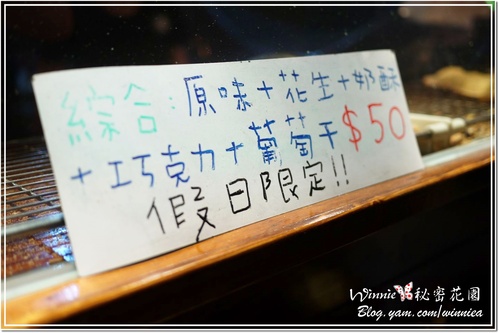 綜合:原味+花生+奶酥
+巧克力+葡萄干$50
假日限定!!
Winnie秘密花園
Blog.yam.com/winniea